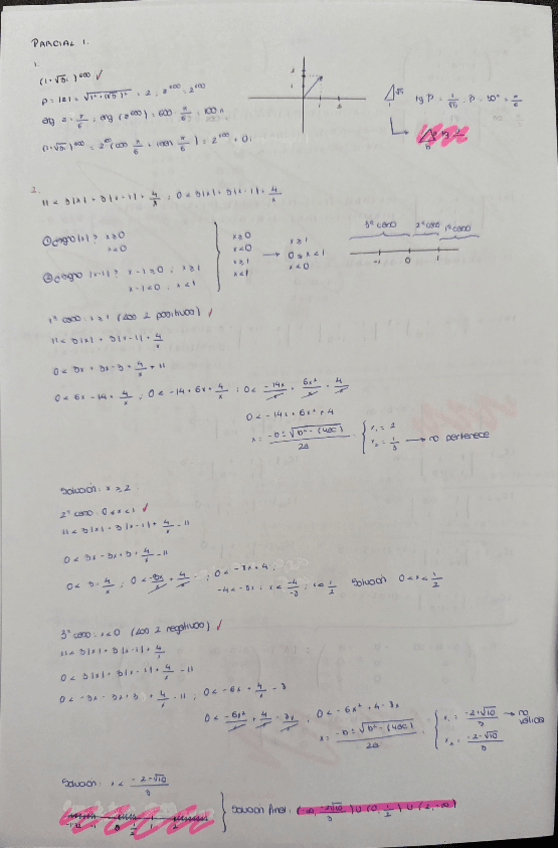 PARCIAL 1.
1.
(1+√3i)^600 ✓
ρ = |z| = √(1² + (√3)²) = 2 ; 2^600 = 2^600
tg β = 1/√3 ; β = 30° = π/6
2.
11 < 3|x| + 3|x-1| + 4/x ; 0 < 3|x| + 3|x-1| + 4/x
① ¿signo |x|? x≥0
x<0
② ¿signo |x-1|? x-1≥0 ; x≥1
x-1<0 ; x<1
x≥0
x<0
x≥1
x<1
→
x≥1
0≤x<1
x<0
3º caso 2º caso 1º caso
-1 0 1
1º caso: x≥1 (los 2 positivos) ✓
11 < 3|x| + 3|x-1| + 4/x
0 < 3x + 3x-3 + 4/x - 11
0 < 6x - 14 + 4/x ; 0 < -14 + 6x + 4/x ; 0 < -14x/x + 6x²/x + 4/x
0 < -14x + 6x² + 4
x = -b ± √(b² - (4ac)) / 2a
x₁ = 2
x₂ = 1/3 → no pertenece
Solución: x ≥ 2
2º caso: 0 < x < 1 ✓
11 < 3|x| + 3|x-1| + 4/x - 11
0 < 3x - 3x + 3 + 4/x - 11
0 < -8x/x + 4/x ; 0 < -8x + 4 ;
-4 < -8x ; x < -4/-8 ; x < 1/2 Solución 0 < x < 1/2
3º caso: x<0 (los 2 negativos) ✓
11 < 3|x| + 3|x-1| + 4/x
0 < 3|x| + 3|x-1| + 4/x - 11
0 < -3x - 3x + 3 + 4/x - 11 ; 0 < -6x + 4/x - 8
0 < -6x²/x + 4/x - 8x/x ; 0 < -6x² + 4 - 8x
x = -b ± √(b² - (4ac)) / 2a
x₁ = -2+√10/3 → no válido
x₂ = -2-√10/3
Solución: x < -2-√10/3
Solución final: